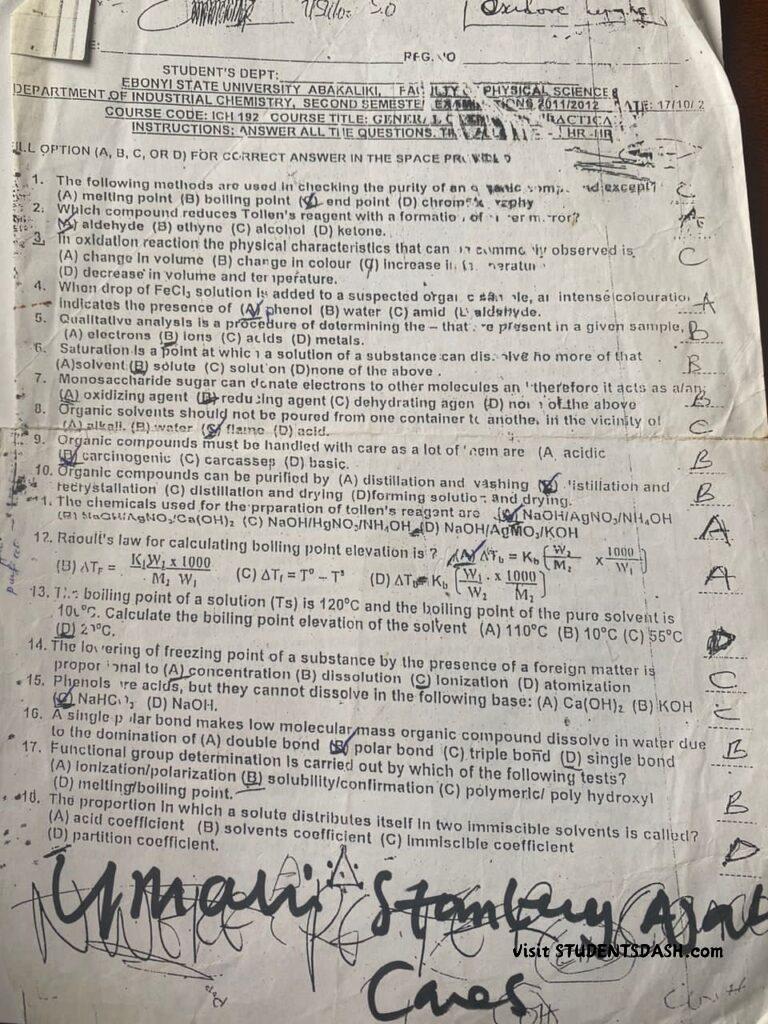 Oxidore
REG. NO
STUDENT'S DEPT:
EBONYI STATE UNIVERSITY ABAKALIKI, PHYSICAL SCIENCE
DEPARTMENT OF INDUSTRIAL CHEMISTRY, SECOND SEMESTE 2011/2012 17/10/ 2
COURSE CODE: ICH 192 COURSE TITLE: GENERAL C RACTICA
INSTRUCTIONS: ANSWER ALL THE QUESTIONS. HR
OPTION (A, B, C, OR D) FOR CORRECT ANSWER IN THE SPACE
1. The following methods are used in checking the purity of an except? C
(A) melting point (B) boiling point (C) end point (D)
2. Which compound reduces Tollen's reagent with a formatio of mirror? A
(A) aldehyde (B) ethyne (C) alcohol (D) ketone.
3. In oxidation reaction the physical characteristics that can observed is C
(A) change in volume (B) change in colour (C) increase in
(D) decrease in volume and temperature.
4. When drop of FeCl₃ solution is added to a suspected an intense colouratio A
indicates the presence of (A) phenol (B) water (C) amid (D) aldehyde.
5. Qualitative analysis is a procedure of determining the – that are present in a given sample, B
(A) electrons (B) ions (C) acids (D) metals.
6. Saturation is a point at which a solution of a substance can dissolve no more of that B
(A)solvent (B) solute (C) solution (D)none of the above .
7. Monosaccharide sugar can donate electrons to other molecules an therefore it acts as a/an B
(A) oxidizing agent (B) reducing agent (C) dehydrating agen (D) none of the above
8. Organic solvents should not be poured from one container to another in the vicinity of C
(A) alkali (B) water (C) flame (D) acid.
9. Organic compounds must be handled with care as a lot of them are (A) acidic
(B) carcinogenic (C) carcasses (D) basic. B
10. Organic compounds can be purified by (A) distillation and washing (B) distillation and
recrystallation (C) distillation and drying (D)forming solution and drying. B
1. The chemicals used for the preparation of tollen's reagent are (A) NaOH/AgNO₃/NH₄OH
(B) NaOH/AgNO₃/Ca(OH)₂ (C) NaOH/HgNO₃/NH₄OH (D) NaOH/AgMO₃/KOH A
12. Raoult's law for calculating boiling point elevation is ? (A) ΔT_b = K_b [W₂/M₂ x 1000/W₁]
(B) ΔT_F = K₁W₁ x 1000 / M₂ W₁ (C) ΔT_f = T° – Tˢ (D) ΔT_b = K_b [W₁/W₂ x 1000/M₂] A
13. The boiling point of a solution (Ts) is 120°C and the boiling point of the pure solvent is
100°C. Calculate the boiling point elevation of the solvent (A) 110°C (B) 10°C (C) 55°C
(D) 20°C. D
14. The lowering of freezing point of a substance by the presence of a foreign matter is
proportional to (A) concentration (B) dissolution (C) ionization (D) atomization C
15. Phenols are acids, but they cannot dissolve in the following base: (A) Ca(OH)₂ (B) KOH
(C) NaHCO₃ (D) NaOH. C
16. A single polar bond makes low molecular mass organic compound dissolve in water due
to the domination of (A) double bond (B) polar bond (C) triple bond (D) single bond B
17. Functional group determination is carried out by which of the following tests?
(A) Ionization/polarization (B) solubility/confirmation (C) polymeric/ poly hydroxyl
(D) melting/boiling point. B
18. The proportion in which a solute distributes itself in two immiscible solvents is called?
(A) acid coefficient (B) solvents coefficient (C) immiscible coefficient
(D) partition coefficient. D
Visit STUDENTSDASH.com
Cares